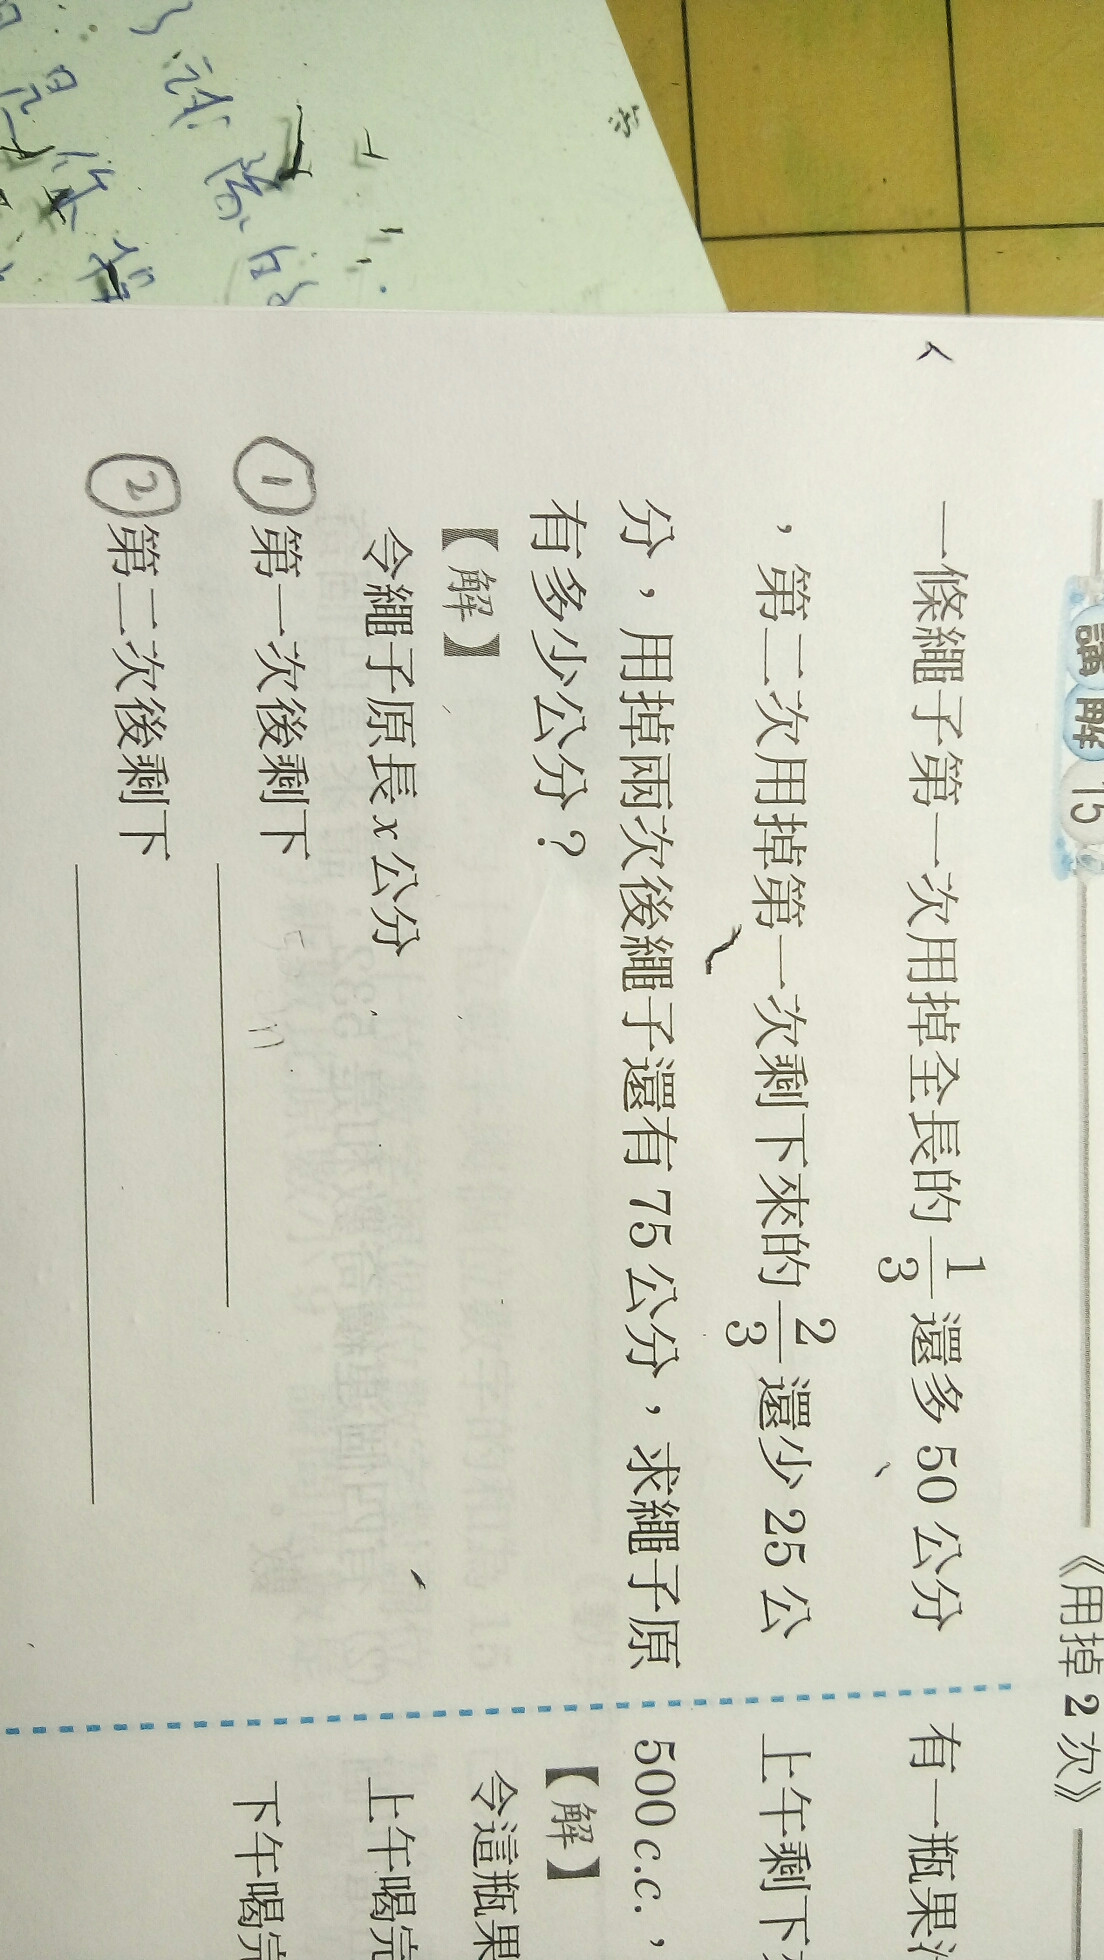 講解 15
《用掉 2 次》
一條繩子第一次用掉全長的 1/3 還多 50 公分
,第二次用掉第一次剩下來的 2/3 還少 25 公
分,用掉兩次後繩子還有 75 公分,求繩子原
有多少公分?
【解】
令繩子原長 x 公分
① 第一次後剩下
② 第二次後剩下
有一瓶果
上午剩下
500 c.c.,
【解】
令這瓶果
上午喝完
下午喝完